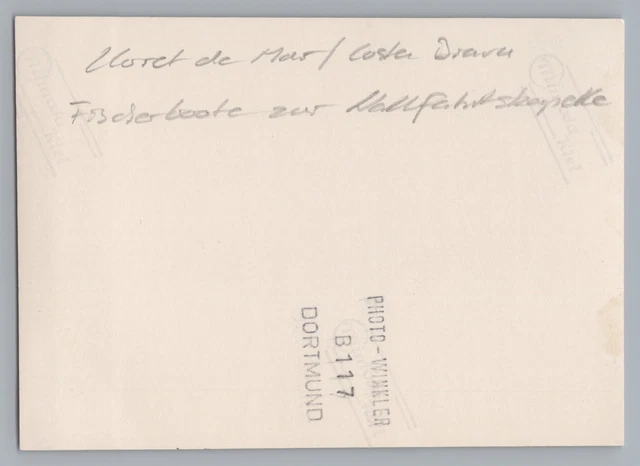 Lloret de Mar / Costa Brava
Fischerboote zur Wallfahrtskapelle
PHOTO-WINKLER
B117
DORTMUND